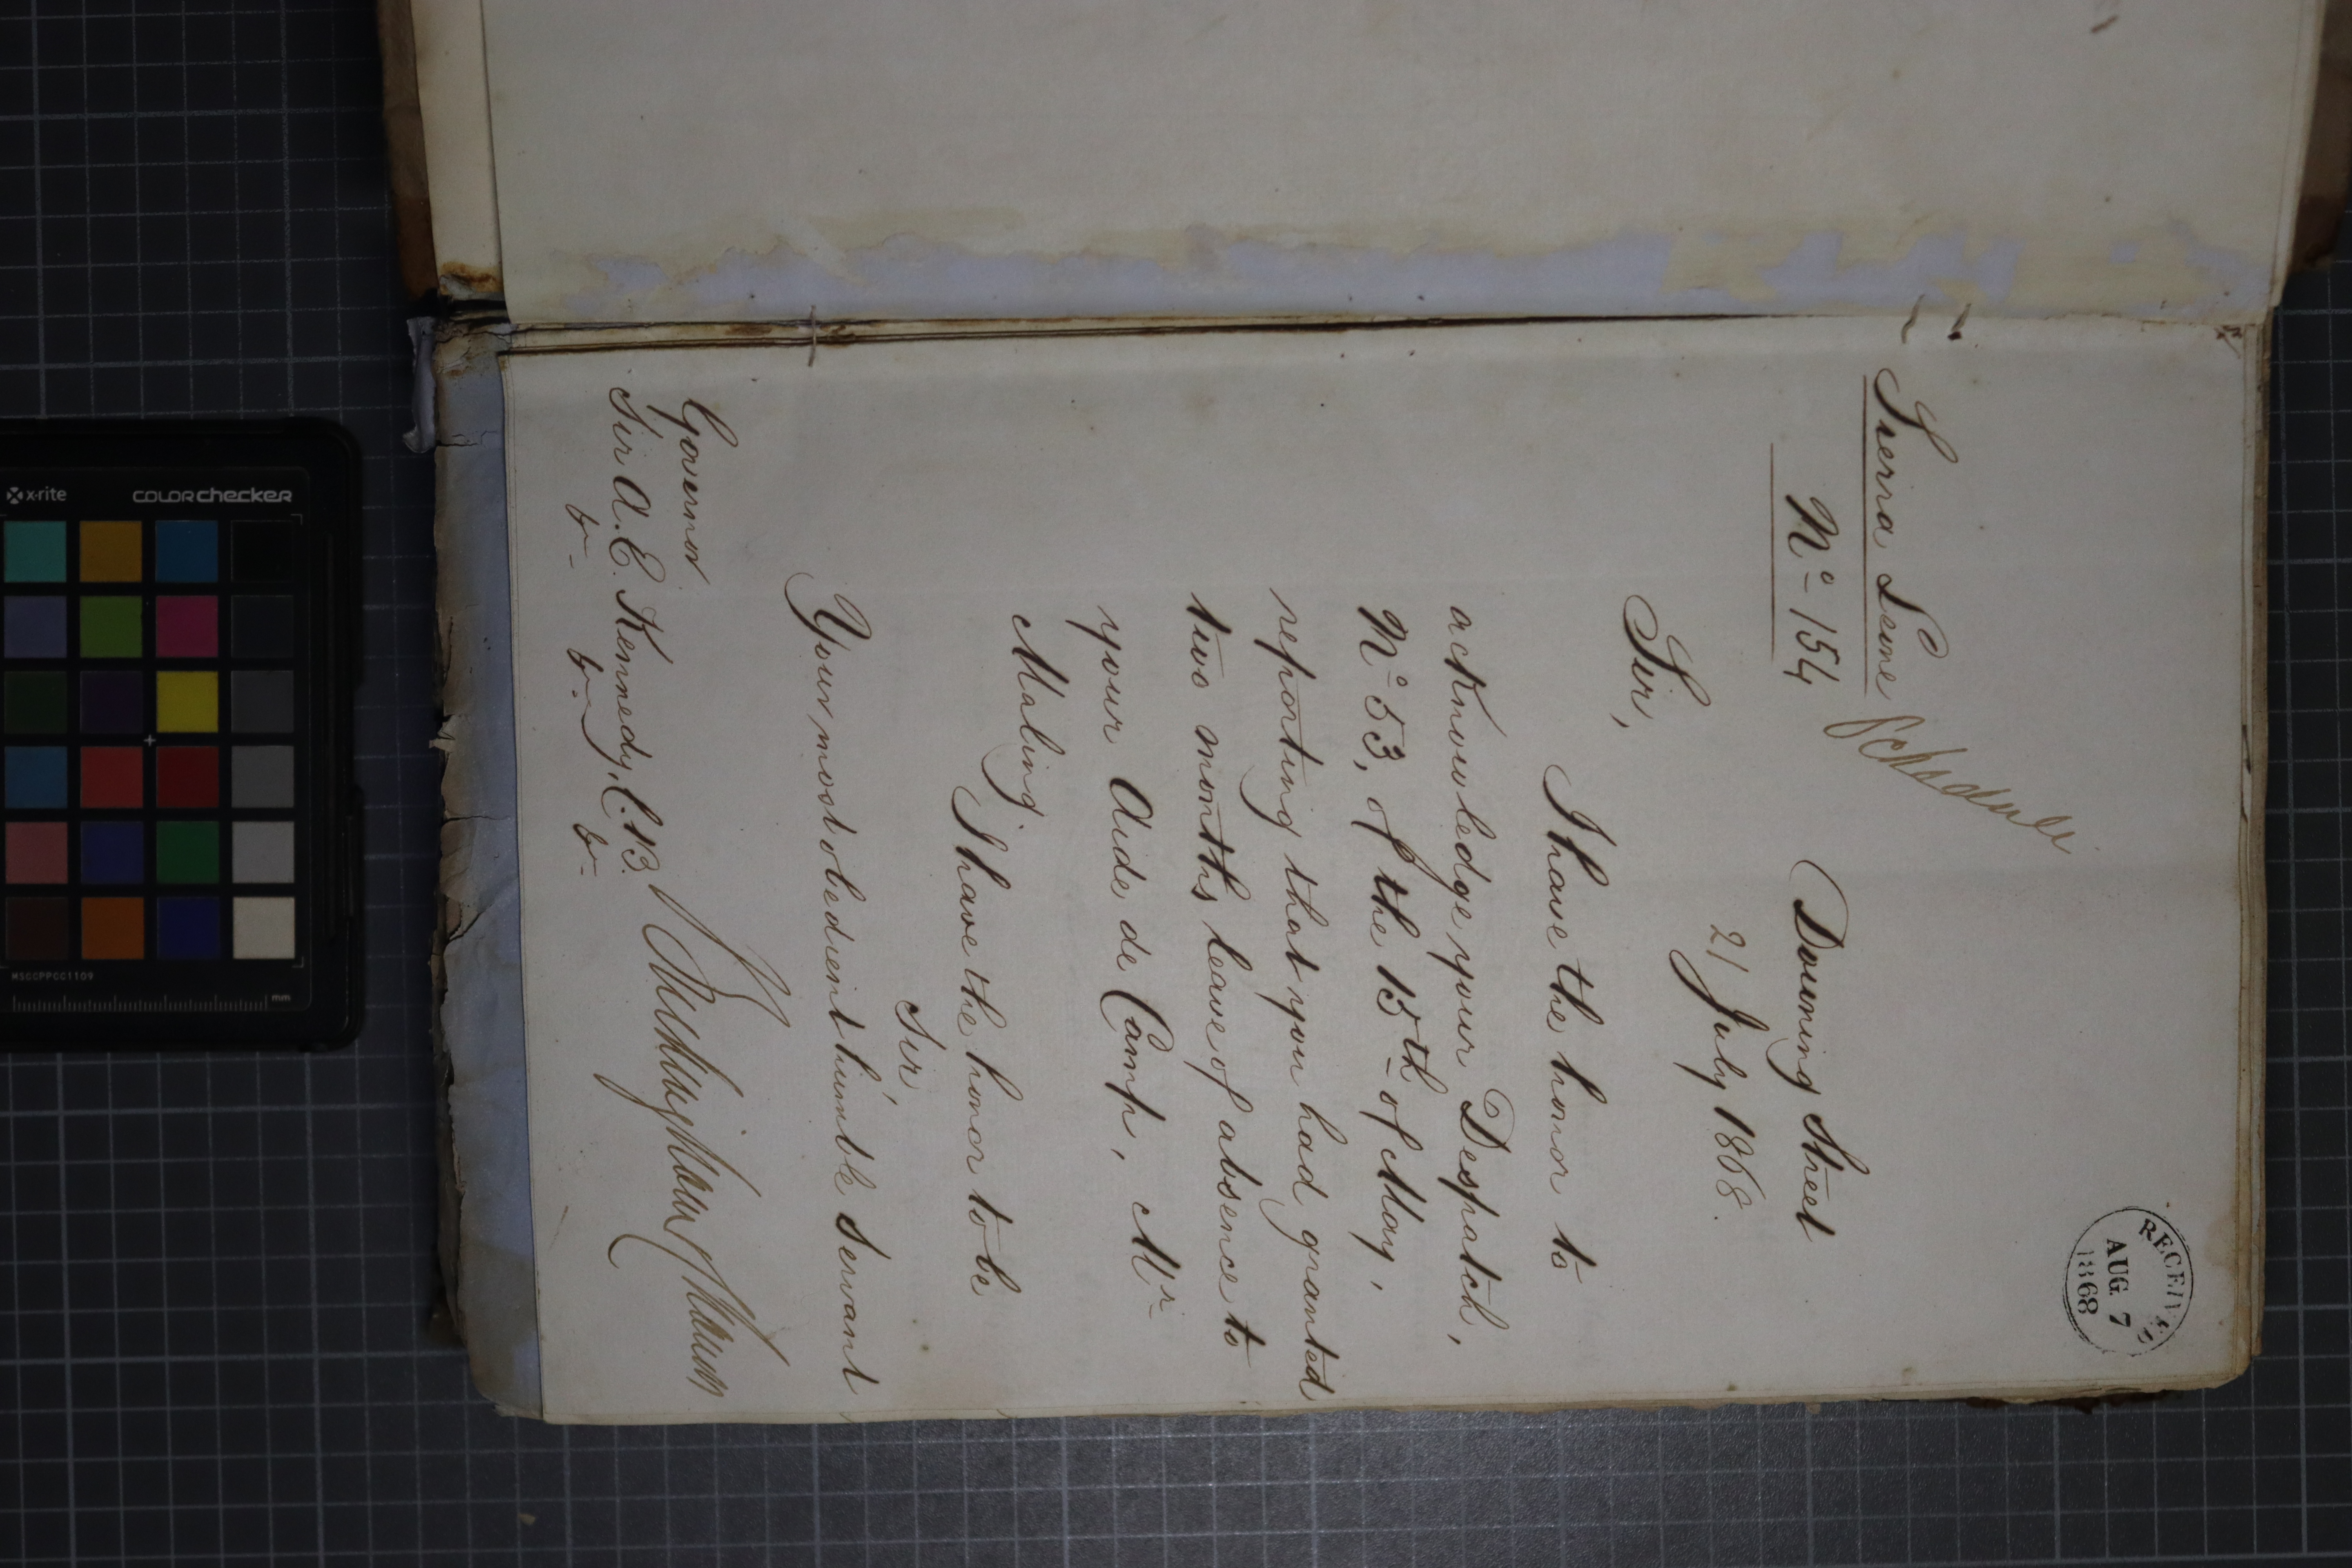 RECEIVED
AUG. 7
1868
Sierra Leone
Schedule
Nº 154
Downing Street
21 July 1868.
Sir,
I have the honor to
acknowledge your Despatch,
Nº 53, of the 15th of May,
reporting that you had granted
two months leave of absence to
your Aide de Camp, Mr
Maling.
I have the honor to be
Sir,
Your most obedient humble Servant
Buckingham & Chandos
Governor
Sir A. E. Kennedy, C.B.
&c &c &c
x-rite
COLORchecker
MSCCPPCC1109
mm